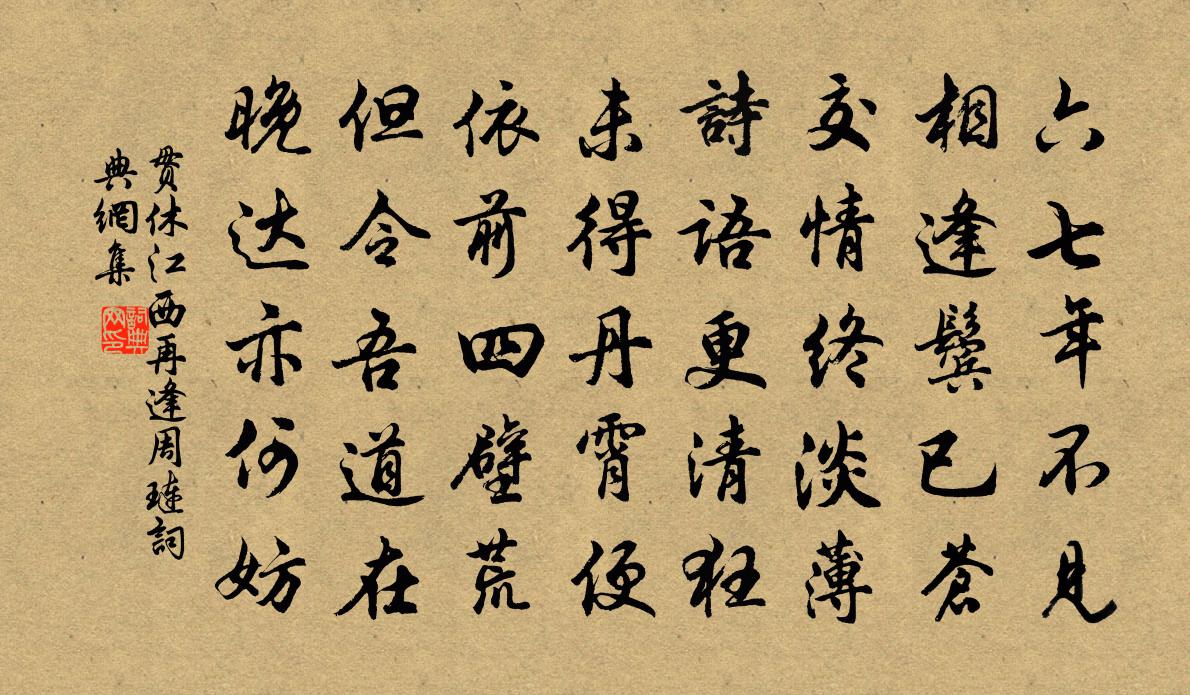 六七年不見
相逢鬓已蒼
交情終淡薄
詩語更清狂
未得丹霄便
依前四壁荒
但令吾道在
晚达亦何妨
贯休江西再逢周琏詞
典網集
詞典网印